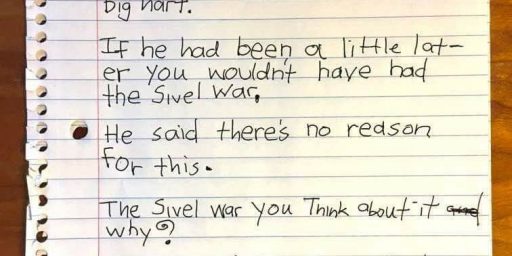 big hart.
If he had been a little lat-
er you wouldn't have had
the Sivel War.
He said there's no redson
for this.
The Sivel war you Think about it and
why?